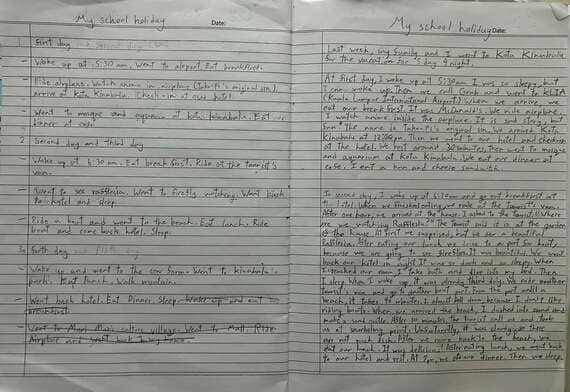 My school holiday
Date:
1. First day
- Wake up at 5:30 am. Went to airport. Eat breakfast.
- Ride airplane. Watch anime in airplane (Tako-Pi's original sin).
arrive at Kota Kinabalu. Check-in at our hotel.
- Went to mosque and aquarium at kota kinabalu. Eat
dinner at cafe.
2 Second day and third day
- Wake up at 6:30 am. Eat break first. Ride at the tourist's
van.
- Went to see rafflesia. Went to firefly watching. Went back
to hotel and sleep.
- Ride a boat and went to the beach. Eat lunch. Ride
boat and come back hotel. Sleep.
3. Forth day
- Wake up and went to the cow farm. Went to kinabalu's
park. Eat lunch. Walk mountain.
- Went back hotel. Eat Dinner. Sleep. Wake up and eat
breakfirst.
- Went to Mari Mari culture village. Went to Mall. Ride
Airplane and went back
My school holiday
Date:
Last week, my family and I went to Kota Kinabalu
for the vacation for 5 day 4 night.
At first day, I wake up at 5:30am. I was so sleepy, but
I can wake up. Then we call Grab and went to KLIA
(Kuala Lumpur International Airport). When we arrive, we
eat our break first. It was McDonald's. We ride airplane.
I watch anime inside the airplane. It is sad story, but
fun. The name is Tako-Pi's original sin. We arrived Kota
Kinabalu at 12:00pm. Then we went to our hotel and checked
at the hotel. We rest around 30 minutes, then went to mosque
and aquarium at Kota Kinabalu. We eat our dinner at
cafe. I eat a ham and cheese sandwich.
To second day, I wake up at 6:30am and go eat breakfirst at
When we finished eating, we rode at the tourist's van.
After one hour, we arrived at the house. I asked to the tourist, "Where
are we watching Rafflesia?" The tourist said it is at the garden
of the house. At first we surprised, but we see a beautiful
Rafflesia. After eating our lunch we drive to a port for boat,
because we are going to see fireflies. It was beautiful. We went
back our hotel in night. It was so dark and so sleepy. When
I reached our room, I take bath and dive into my bed. Then
I sleep. When I wake up it was already third day. We rode another
tourist's van and go to another port. From the port until a
beach, it takes 20 minutes. I almost fell down, because I don't like
riding boats. When we arrived the beach, I dashed into sand and
make a sand castle. After 20 minutes, the tourist call us and took
us at snorkeling point. Unfortunately, it was cloudy so there
are not much fish. After we came back to the beach, we
eat our lunch. It was delicious! After eating lunch, we went back
to our hotel and rest. At 7pm, we ate our dinner. Then we sleep.